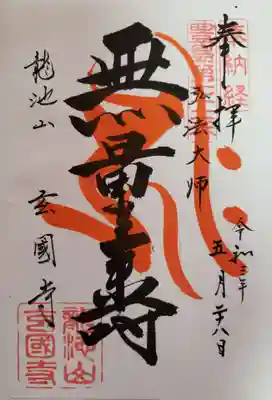 奉納経
奉拝
令和三年
五月廿八日
弘法大師
無量壽
龍池山
玄國寺
龍池山
玄國寺